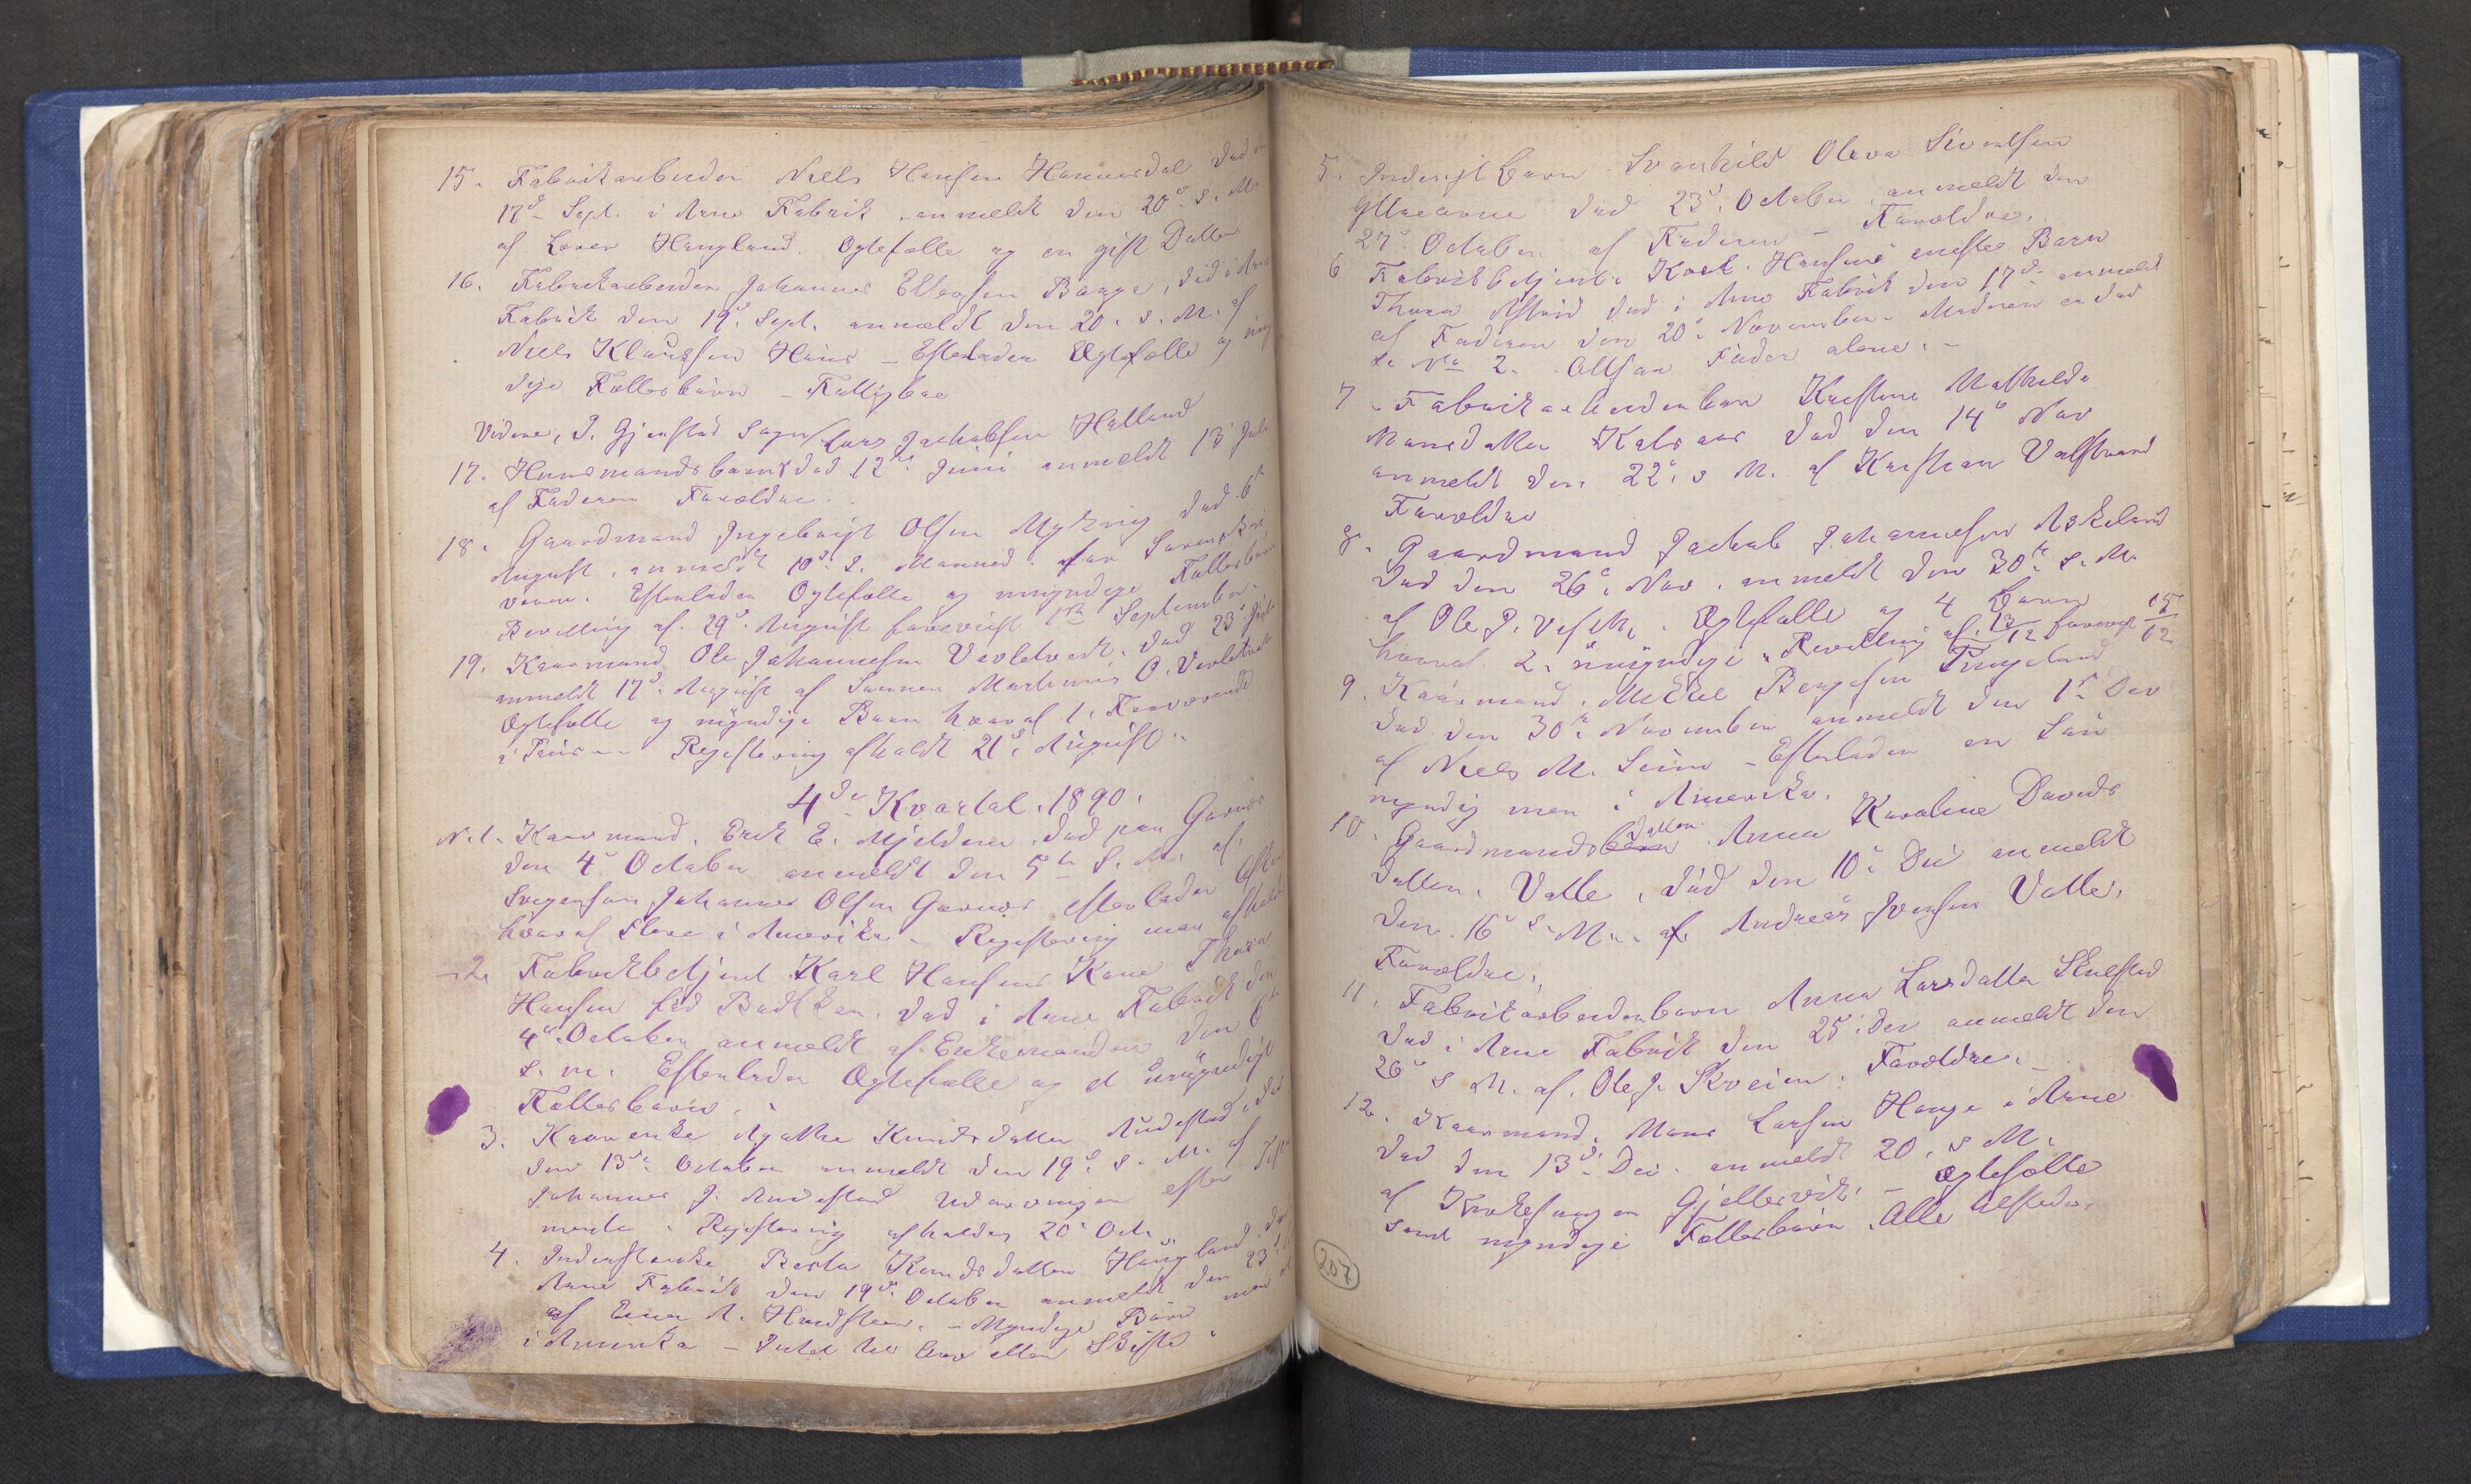 15. Fabrikarbeider Niels Hansen Hammersdal død
17d Sept. i Arne Fabrik anmeldt den 20de s. M.
af Haugland. Ægtefælle og en gift Datter
16. Fabrikarbeider Johannes Ellevsen Borge, død i Arne
Fabrik den 19d Sept. anmeldt den 20. s. M. af
Niels Klausen - Efterlader Ægtefælle og
dige Fællesbørn - Fattigkas
Videre, J. Gjerstad Sogn Lars Jachobsen Helland
17. Huusmandsbarn død 12te Juni anmeldt 13
af Faderen Forældre.
18. Gaardmand Ingebrigt Olsen Myking død 6te
August, anmeldt 10d s. Maaned
Efterlader Ægtefælle og umyndige Fællesbørn
Bevilling af 29d August forevist September.
19. Kaarmand Ole Johannesen Død 23d
anmeldt 17d August af Sønnen Martinus O.
Ægtefælle og myndige Børn hvoraf 1. Fraværende
i Registering afholdt 21d August
4de Kvartal. 1890.
N. 1. Kaarmand. Erik E. Mjelderen. død paa Garnes
den 4d October anmeldt den 5te s. M. af.
Svigersøn Johannes Olsen Garnes efterlader
hvoraf flere i Amerika. Registering
- 2. Fabrikbetjent Karl Hansens Kone Thora
Hansen fød død i Arne Fabrik den
4d October anmeldt af Enkemanden den 6te
s. m. Efterlader Ægtefælle og et umyndigt
Fællesbarn.
3. Kaarenke Agathe Knudsdatter Audestad, død
den 13de October anmeldt den 19d s. M. af
Johannes J. Audestad Udarvinger efter
Registering afholdes 20d Oct.
4. Inderstenke Berta Knudsdatter Haugland. død
Arne Fabrik den 19d October anmeldt den 23
af - Myndige Børn
i Amerika - Intet Arv eller Skifte
5. Inderstbarn Svanhild Oleva Sivertsen
død 23d October anmeldt den
27d October af Faderen - Forældre.
6 Fabrikbetjent Karl Hansens eneste Barn
Thora Astrid død i Arne Fabrik den 17d anmeldt
af Faderen den 20d November - Moderen er død
Se No 2. Altsaa Fader alene. -
7. Fabrikarbeiderbarn Kristine Mathilde
Monsdatter Kalsaas død den 14d Nov
anmeldt den 22d s M. af Kristian Valstrand
Forældre
8. Gaardmand Jachob Johannesen Askeland
Død den 26d Nov. anmeldt den 30te s. M.
af Ole J. Ægtefælle og 4 Børn
hvoraf 2. umyndige. Bevilling af 13/12 forevist 15/12
9. Kaarmand. Mikkel Bengtsen Tengeland
død den 30te November anmeldt den 1st Dec
af Niels M. Seim - Efterlader en Søn
myndig men i Amerika.
10. Gaardmandsbarn datter Anna Karoline Davids
datter. Valle, død den 10d Dec anmeldt
den 16d s. M. af Andreas Iversen Valle.
Forældre.
11. Fabrikarbeiderbarn Anna Larsdatter Skulstad
død i Arne Fabrik den 25d Dec anmeldt den
26d s M. af Ole J. Kveien. Forældre. -
12. Kaarmand. Mons Larsen Hauge i Arne
død den 13d Dec. anmeldt 20. s M.
af Kirkesanger Gjellesvik. - Ægtefælle
samt myndige Fællesbørn. Alle tilstede.
207